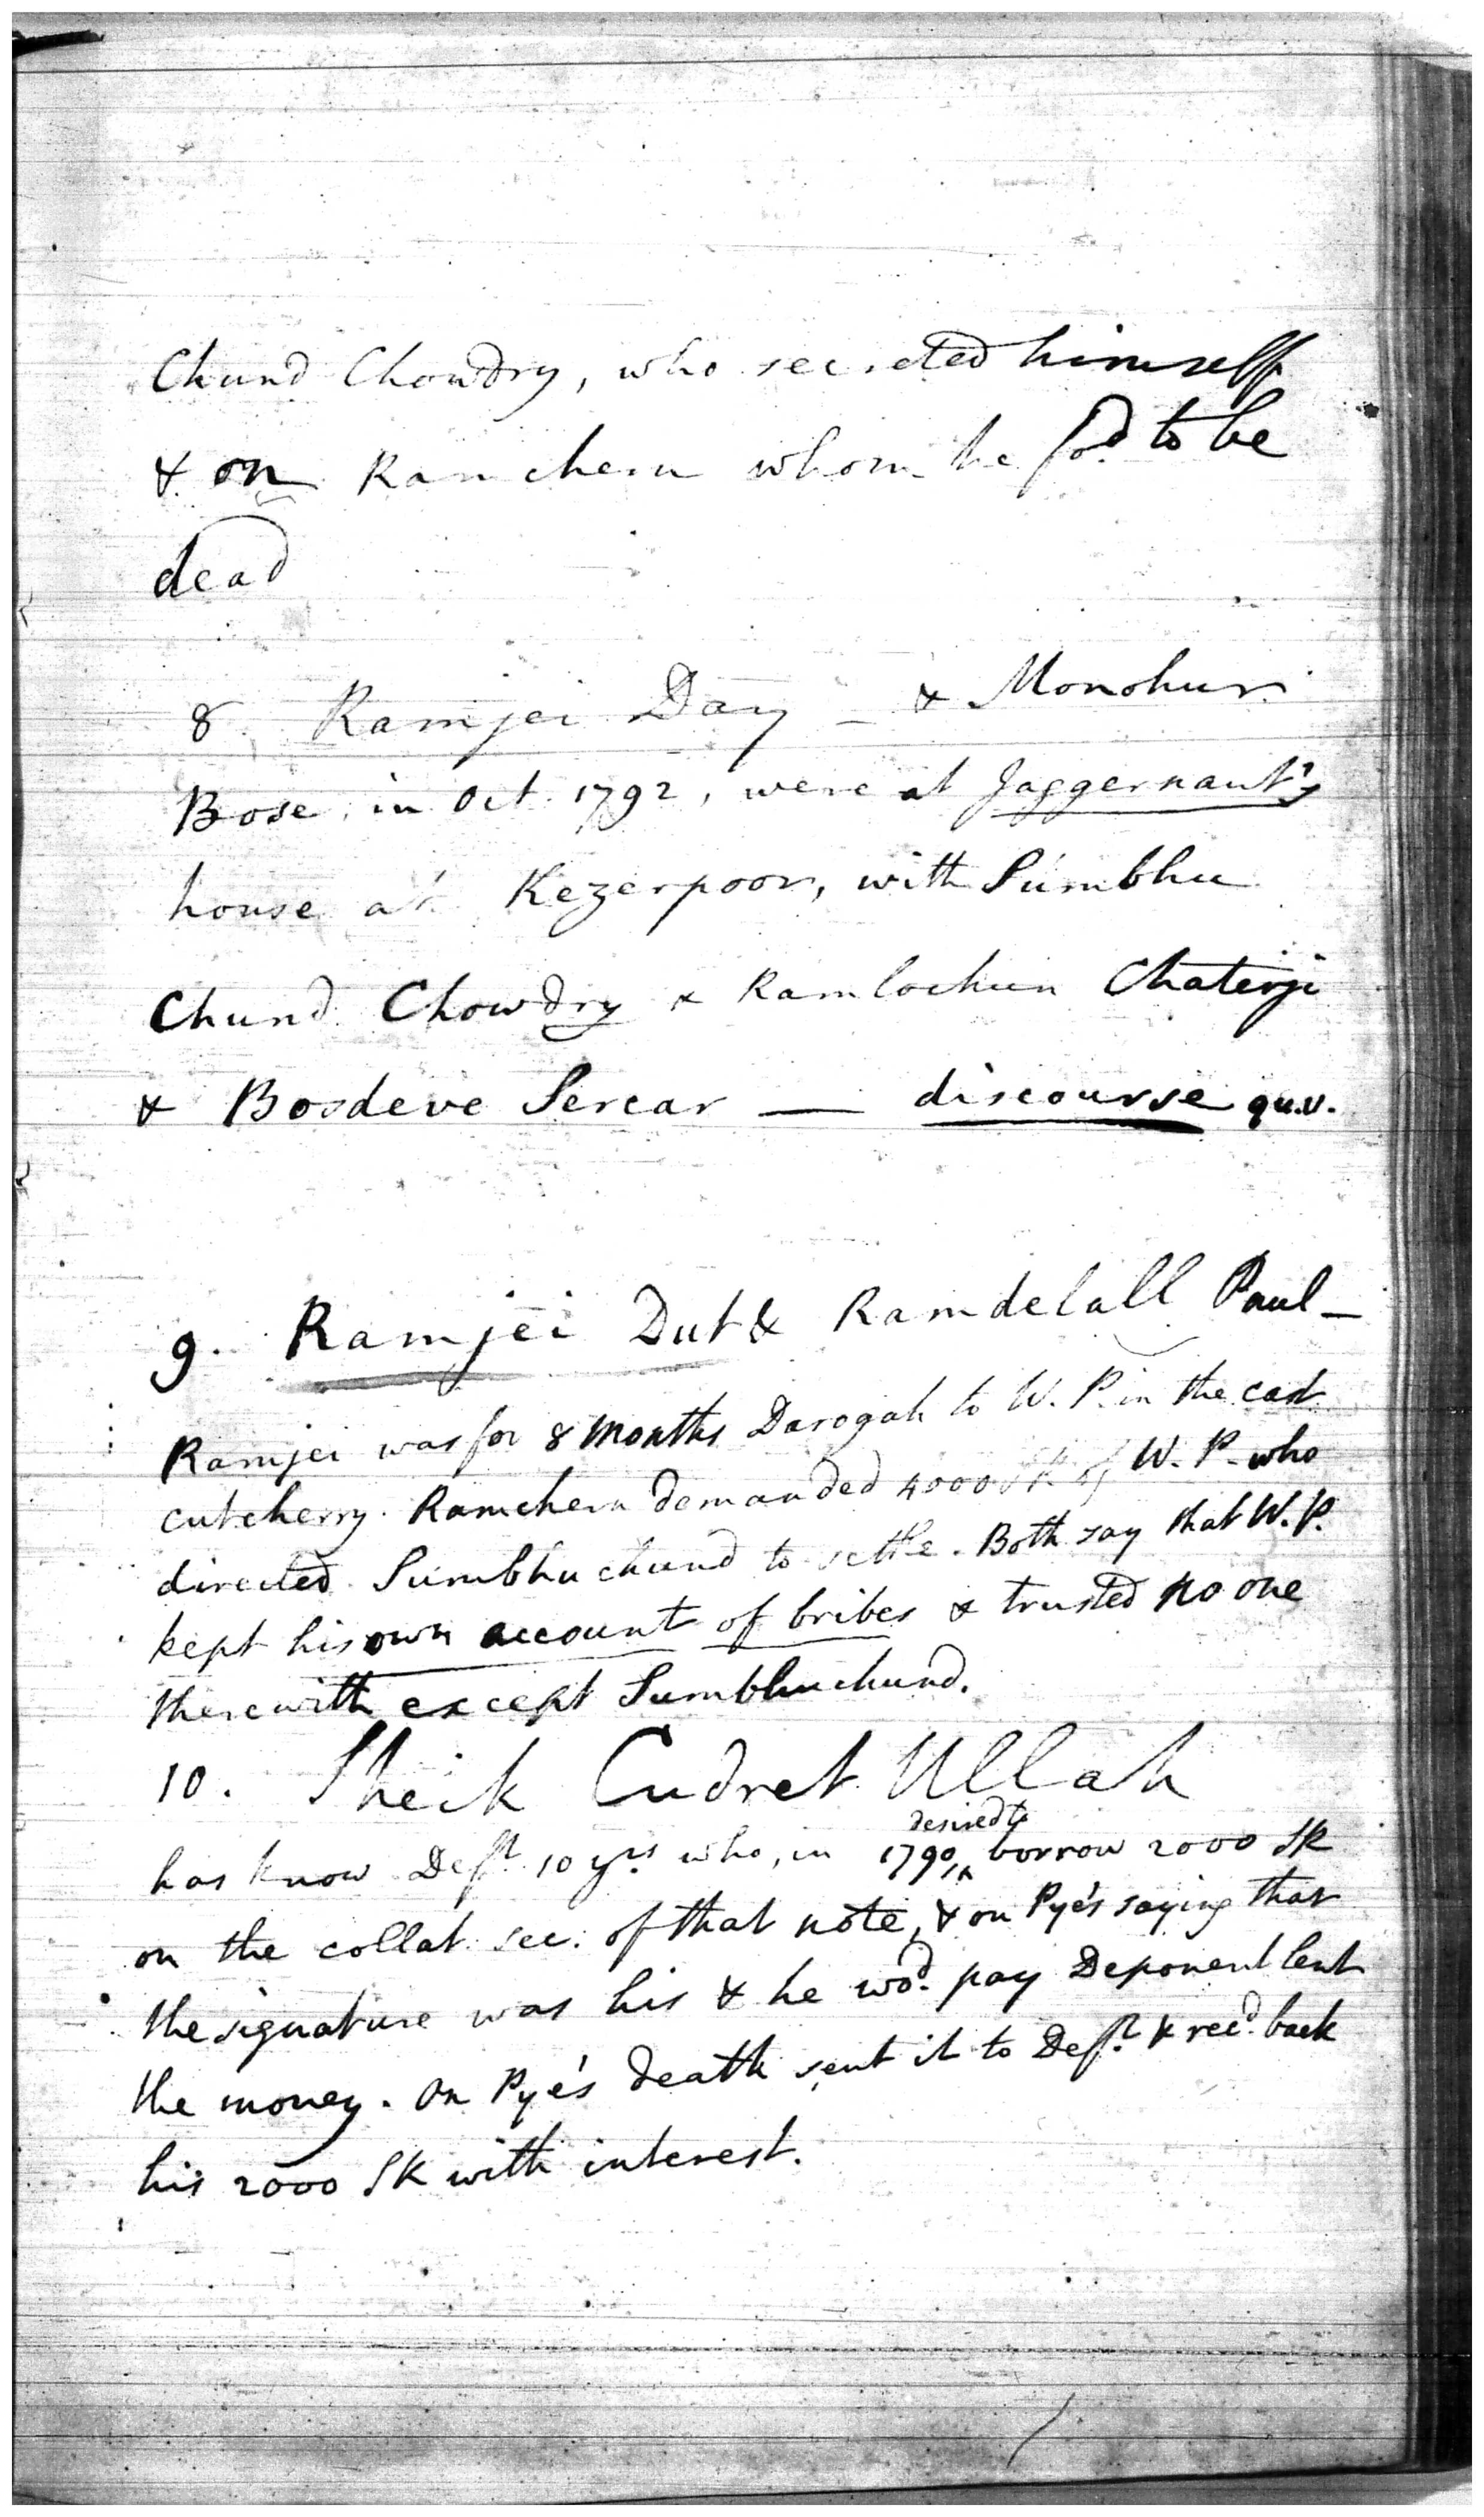 Chund Chowdry, who secreted himself
& on Ramchern whom he fod. to be
dead
8 Ramjei Day — & Monohur
Bose, in Oct. 1792, were at Jaggernaut's
house at Kezerpoor, with Sumbhu
Chund Chowdry & Ramlochun Chaterji
& Bosdeve Sercar — discourse qu.v.
9. Ramjei Dut & Ramdelall Paul —
Ramjei was for 8 months Darogah to W. P. in the
cutcherry. Ramchern demanded 4000 SR of W. P. who
directed Sumbhuchund to settle. Both say that W. P.
kept his own account of bribes & trusted no one
therewith except Sumbhuchund.
10. Sheik Cudret Ullah
desired to
has know Deft. 10 yrs who, in 1790,^ borrow 2000 SR
on the collat. sec. of that note, & on Pye's saying that
the signature was his & he wod. pay Deponent lent
the money. On Pye's death sent it to Deft. & recd. back
his 2000 SR with interest.